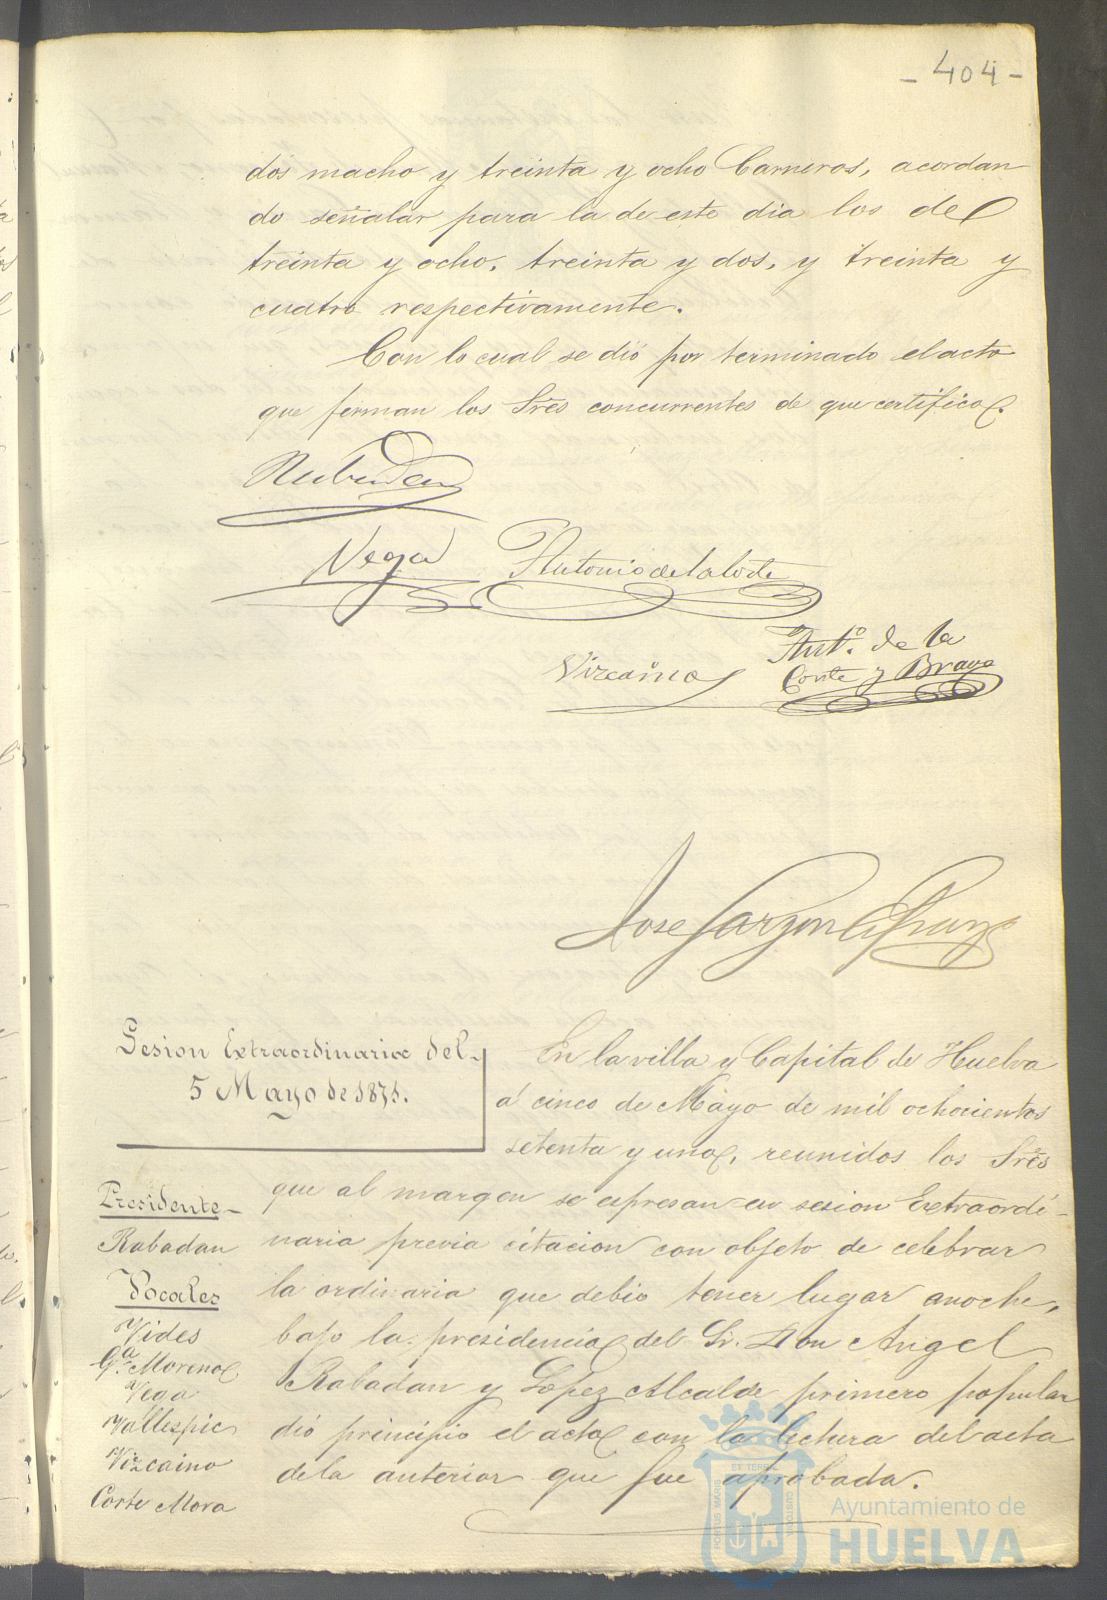 - 404 -
dos macho y treinta y ocho Carneros, acordan
do señalar para la de este dia los de
treinta y ocho, treinta y dos, y treinta y
cuatro respectivamente.
Con lo cual se dió por terminado el acto
que firman los Sres concurrentes de que certifico.
Rabadan
Vega Antonio de la Corte
Vizcaino Antº. de la
Corte y Bravo
Jose Garzon
Sesion Extraordinaria del
5 Mayo de 1871.
En la villa y Capital de Huelva
á cinco de Mayo de mil ochocientos
setenta y uno, reunidos los Sres
que al margen se espresan en sesion Extraordi-
naria previa citacion con objeto de celebrar
la ordinaria que debio tener lugar anoche,
bajo la presidencia del Sr. Don Angel
Rabadan y Lopez Alcalde primero popular
dió principio el acto con la lectura del acta
de la anterior que fue aprobada.
Presidente
Rabadan
Vocales
Vides
Gª. Moreno
Vega
Vallespic
Vizcaino
Corte Mora
PORTUS MARIS ET TERRE CUSTODIA
Ayuntamiento de
HUELVA